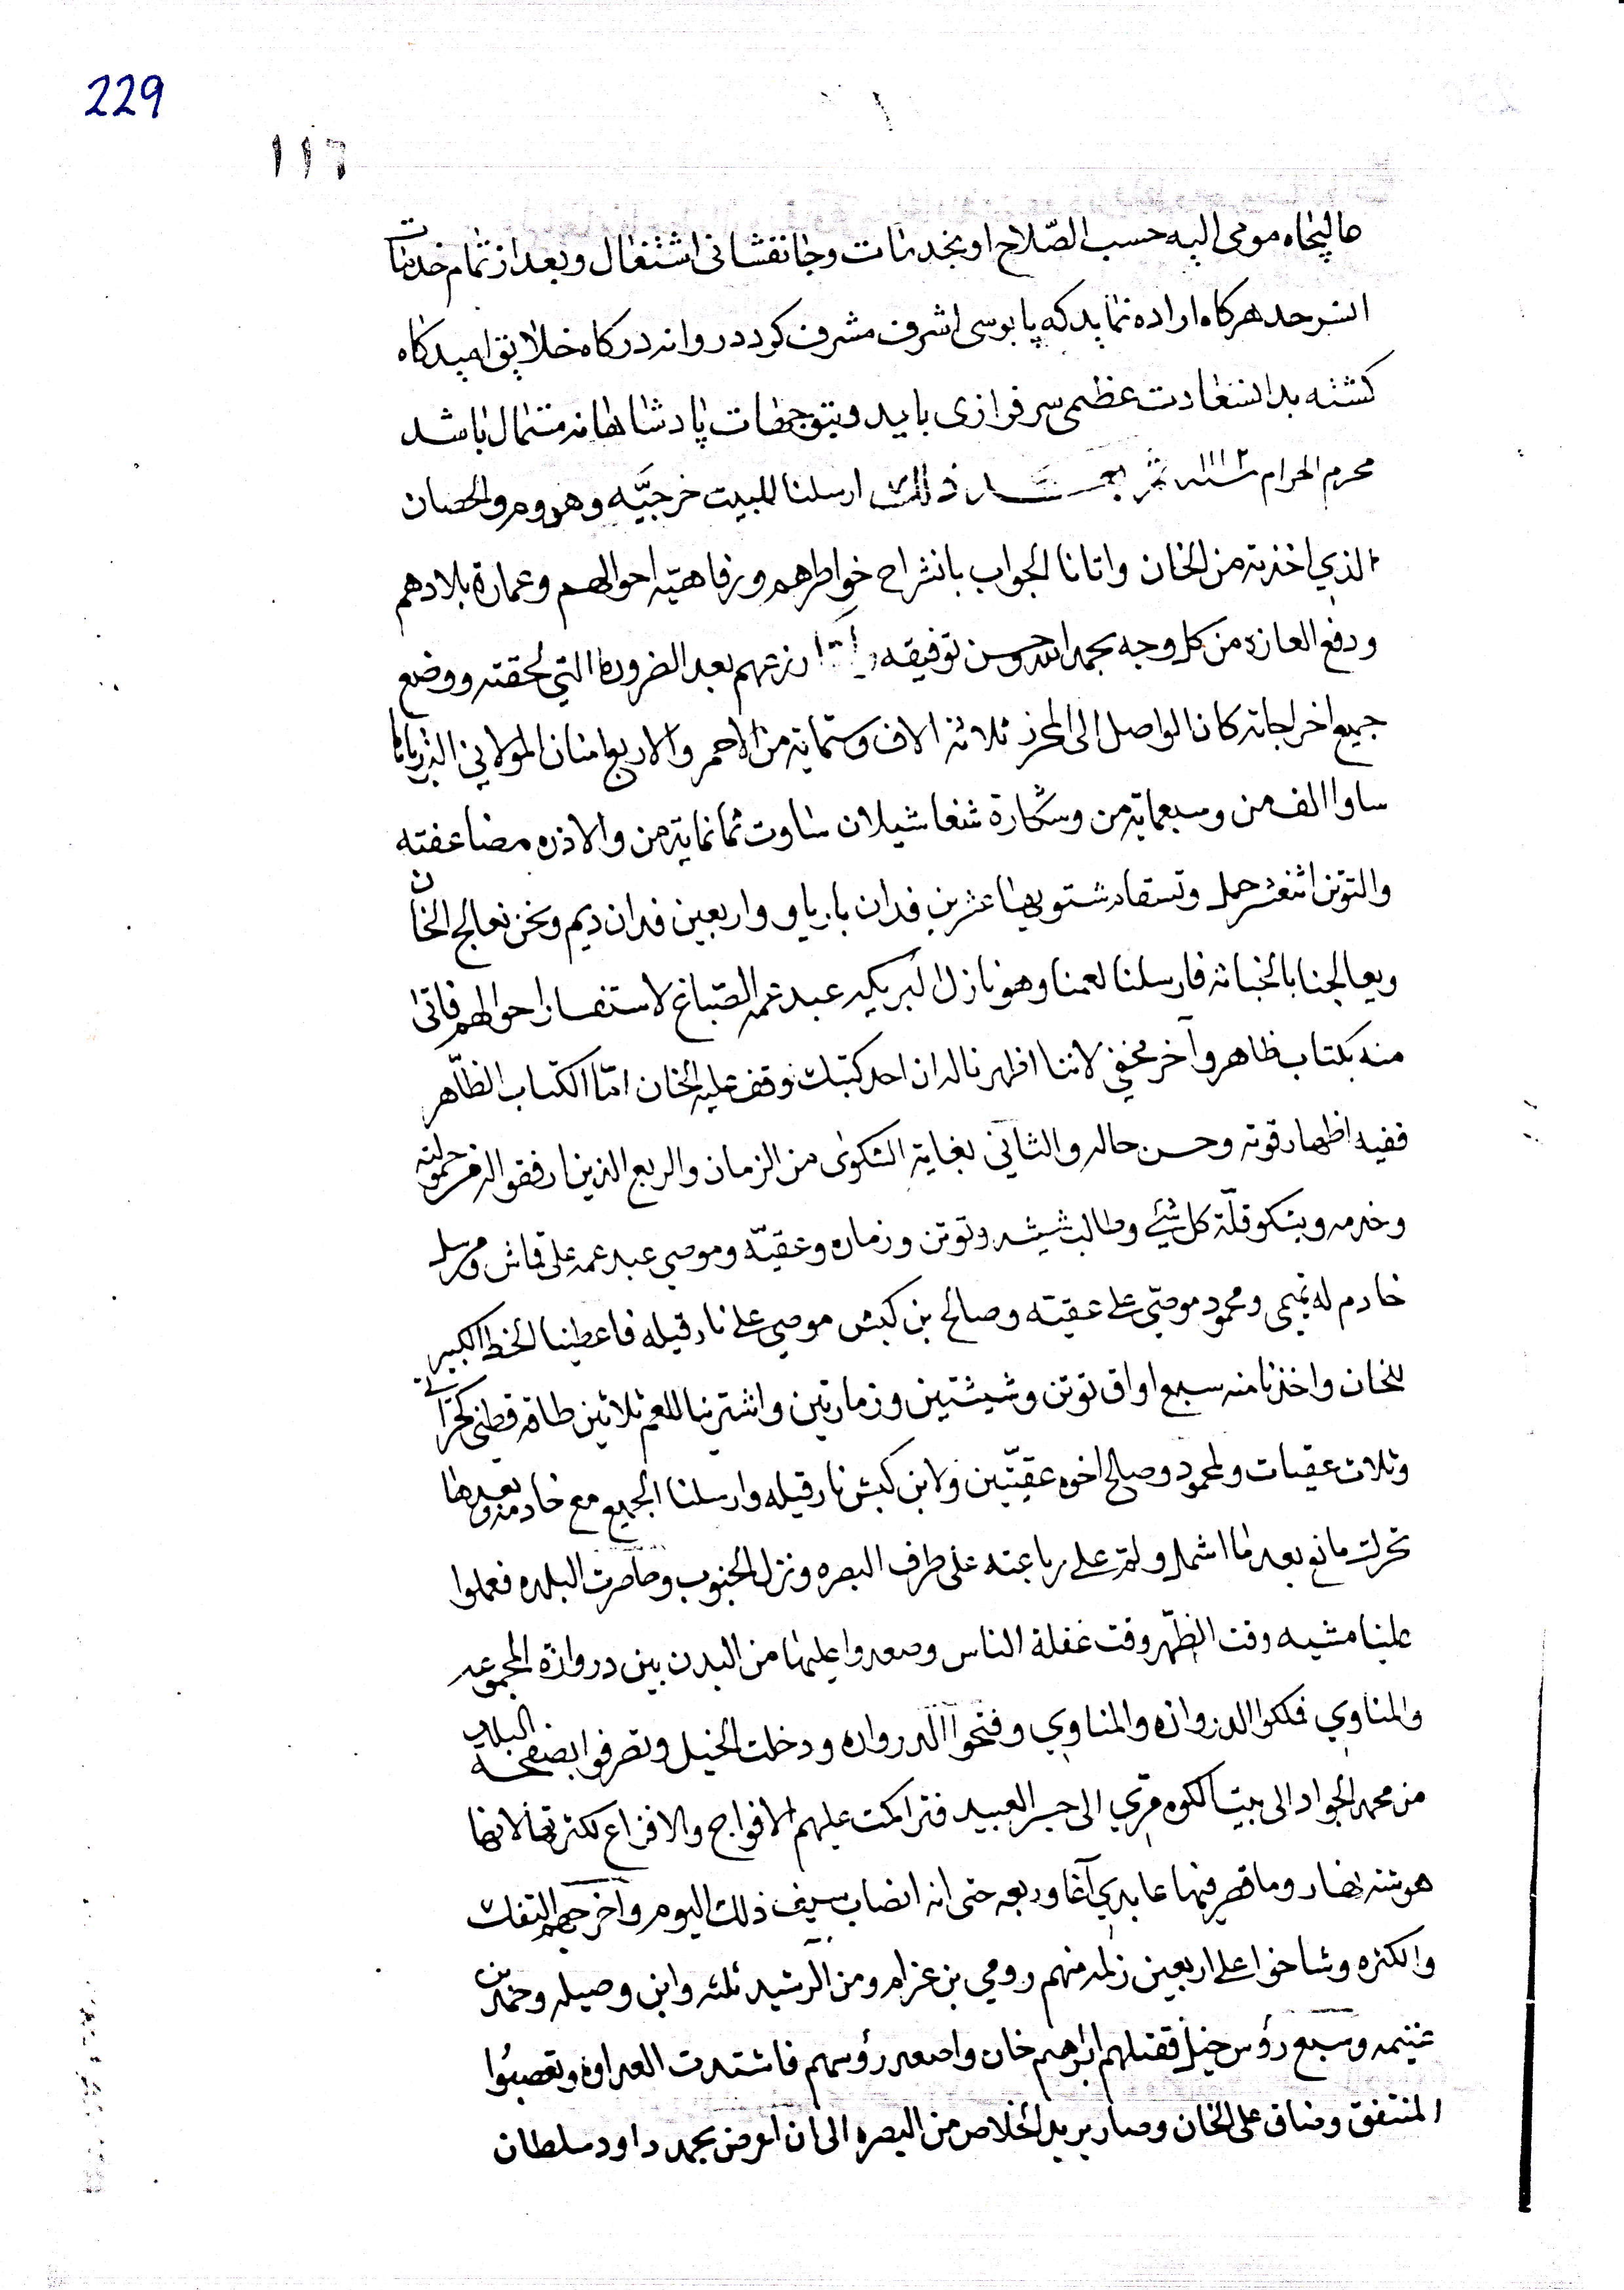 229
١١٦
عاليجاه مومى اليه حسب الصّلاح او بخدمات وجانفشانى اشتغال وبعد از تمام خدمات
انسرحد هركاه اراده نمايد كه پابوسى اشرف مشرف كردد روانه دركاه خلايق اميدكاه
كشته بدانسعادت عظمى سرفرازى يابد وبتوجهات پادشاهانه مستمال باشد
محرم الحرام سنه ١١١٢ ثم بعد ذلك ارسلنا للبيت خرجيّه وهدوم والحصان
الذي اخذته من الخان واتانا الجواب بانشراح خواطرهم ورفاهيّة احوالهم وعمارة بلادهم
ودفع العازه من كل وجه بحمد الله وحسن توفيقه زرعهم بعد الضروره التي لحقته ووضع
جميع اخراجاته كان الواصل الى المخزن ثلاثة الاف وستماية من الاحمر والاربع امنان المولاني
ساوا الف من وسبعماية من وشكارة شنعا شيلان ساوت ثمانماية من والاذره مضاعفته
والتوتن اثنعشر حمل وتستقام شتويها عشرين فدان بارياو واربعين فدان ديم ونحن نعالج الخان
ويعالجنا بالخباثه فارسلنا لعمنا وهو نازل عبد عمه الصّباغ لاستفسار احوالهم فاتى
منه بكتاب ظاهر وآخر مخفي لاننا اظهرنا له ان احد كتبك وقف عليه الخان امّا الكتاب الظّاهر
ففيه اظهار قوته وحسن حاله والثاني بغاية الشكوى من الزمان والربع الذين ارفقوا له من حمولته
وخدمه ويشكو قلّة كل شئ وطالب شيشه وتوتن وزماره وعقيّه وموصي عبد عمه على قماش ومرسل
خادم له تميمى ومحمود موصّي على عقيته وصالح بن كبش موصي على نارقيله فاعطينا الخط الكبير
للخان واخذنا منه سبع اواق توتن وشيشتين وزمارتين واشترينا للعم ثلاثين طاقه قطني كجراتي
وثلاث عقيات ولمحمود وصالح اخوه عقيّتين ولابن كبش نارقيله وارسلنا الجميع مع خادمه وبعدها
تحرك مانع بعد ما اشمل ولمّ على رباعته على طرف البصره ونزل الجنوب وحاصرت البلده فعملوا
علينا مشيه وقت الظّهر وقت غفلة الناس وصعدوا علينا من البدن بين دروازة المجموعه
والمناوي فلكوا الدروازه والمناوي وفتحوا الدروازه ودخلت الخيل وتصرفوا بصفحة البلاد
من محمد الجواد الى بيت الكوه مرّي الى جسر العبيد فتراكمت عليهم الافواج والافزاع لكثرتها لانها
هوشة نهار وما قصر فيها عابدي آغا وربعه حتى انه انصاب بسيف ذلك اليوم واخرجهم التفك
والكثره وشاخوا على اربعين زلمه منهم رومي بن عزام ومن الرشيد ثلثه وابن وصيله وحمد بن
غنيمه وسبع رؤس خيل فقتلهم ابراهيم خان واصعد رؤسهم فاشتدت العداوه وتعصبُوا
المنتفق وضاق على الخان وصار يريد الخلاص من البصره الى ان اعرض بحمد داود سلطان